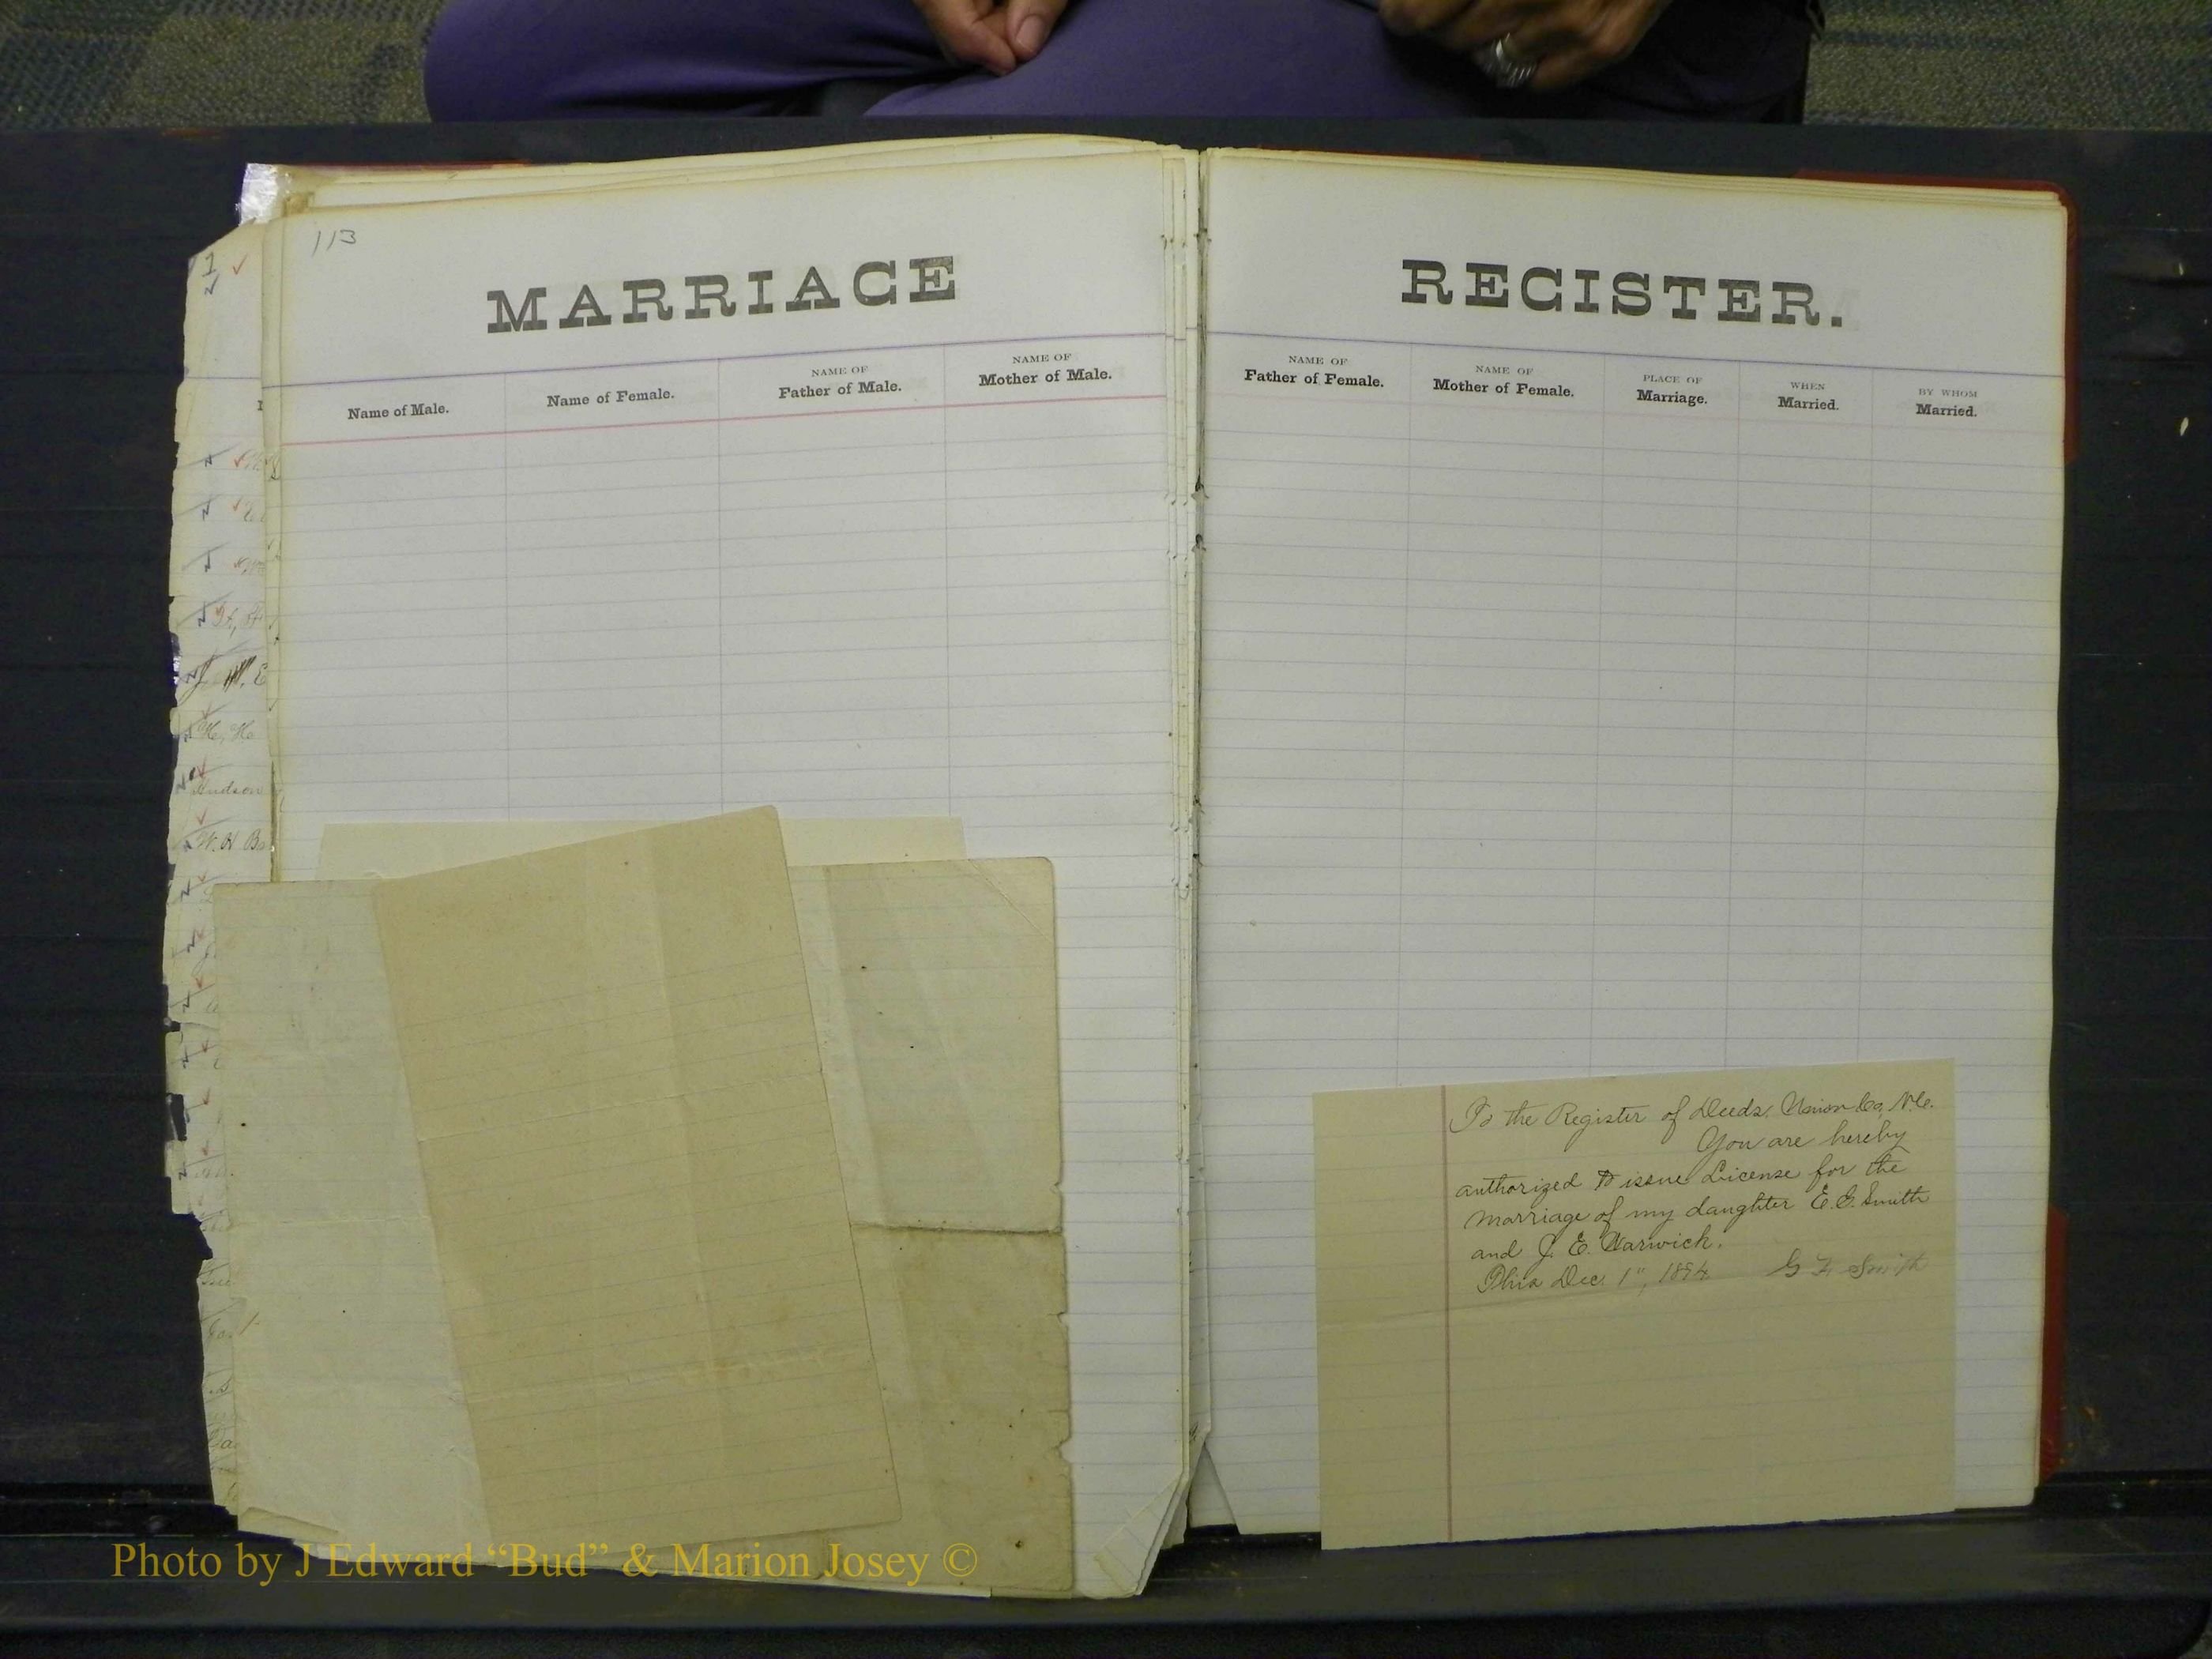 113
MARRIAGE
Name of Male.
Name of Female.
NAME OF
Father of Male.
NAME OF
Mother of Male.
REGISTER.
NAME OF
Father of Female.
NAME OF
Mother of Female.
PLACE OF
Marriage.
WHEN
Married.
BY WHOM
Married.
1
H, H
Hudson
W. H B
To the Register of Deeds, Union Co, N.C.
You are hereby
authorized to issue License for the
marriage of my daughter E. E. Smith
and J. E. Warwick.
This Dec. 1", 1894. G F Smith
Photo by J Edward “Bud” & Marion Josey ©